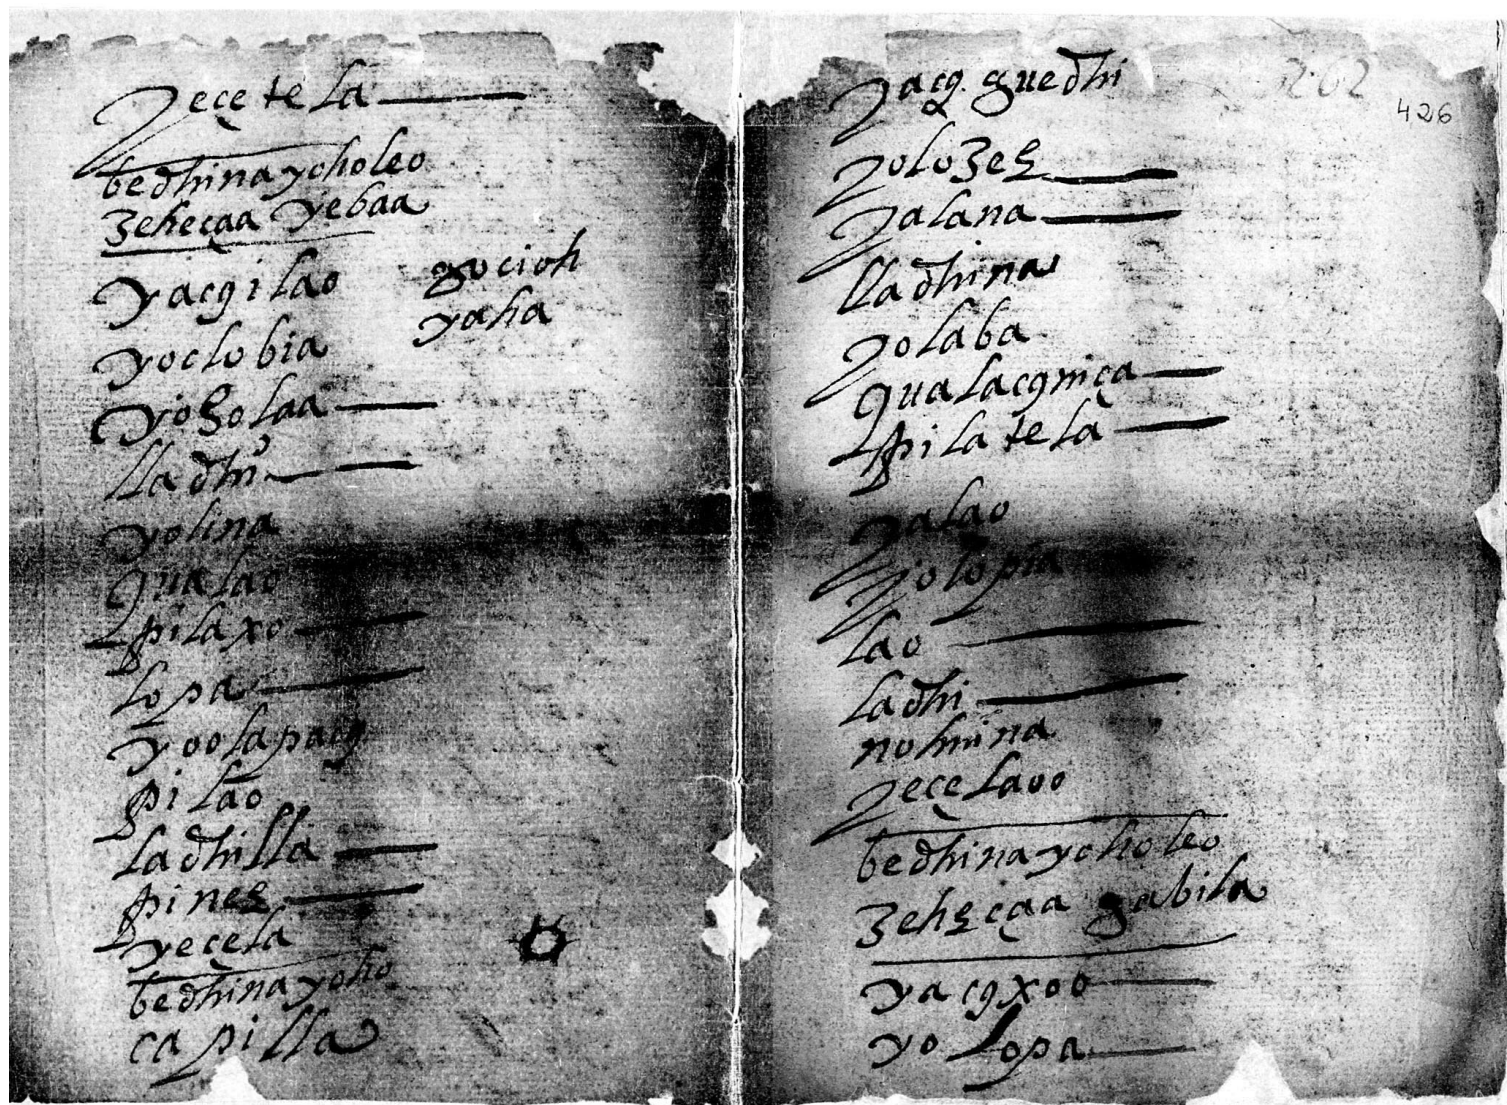 yeçetela
bedhina yoholeo
zeheçaa yebaa
yacqilao gocioh
yoclobia yaha
yoholaa
lladhi
yolina
qualao
pilaxo
lopa
yoolapacq
pilao
ladhilla
pinee
yeçela
bedhina yoho
capilla
yacq guedhi
426
yolozee
yalana
lladhina
yolaba
qualacqniça
pilatela
yalao
yolopia
lao
ladhi
nohuina
yeçelaoo
bedhina yoholeo
zeheçaa gabila
yacqxoo
yolopa